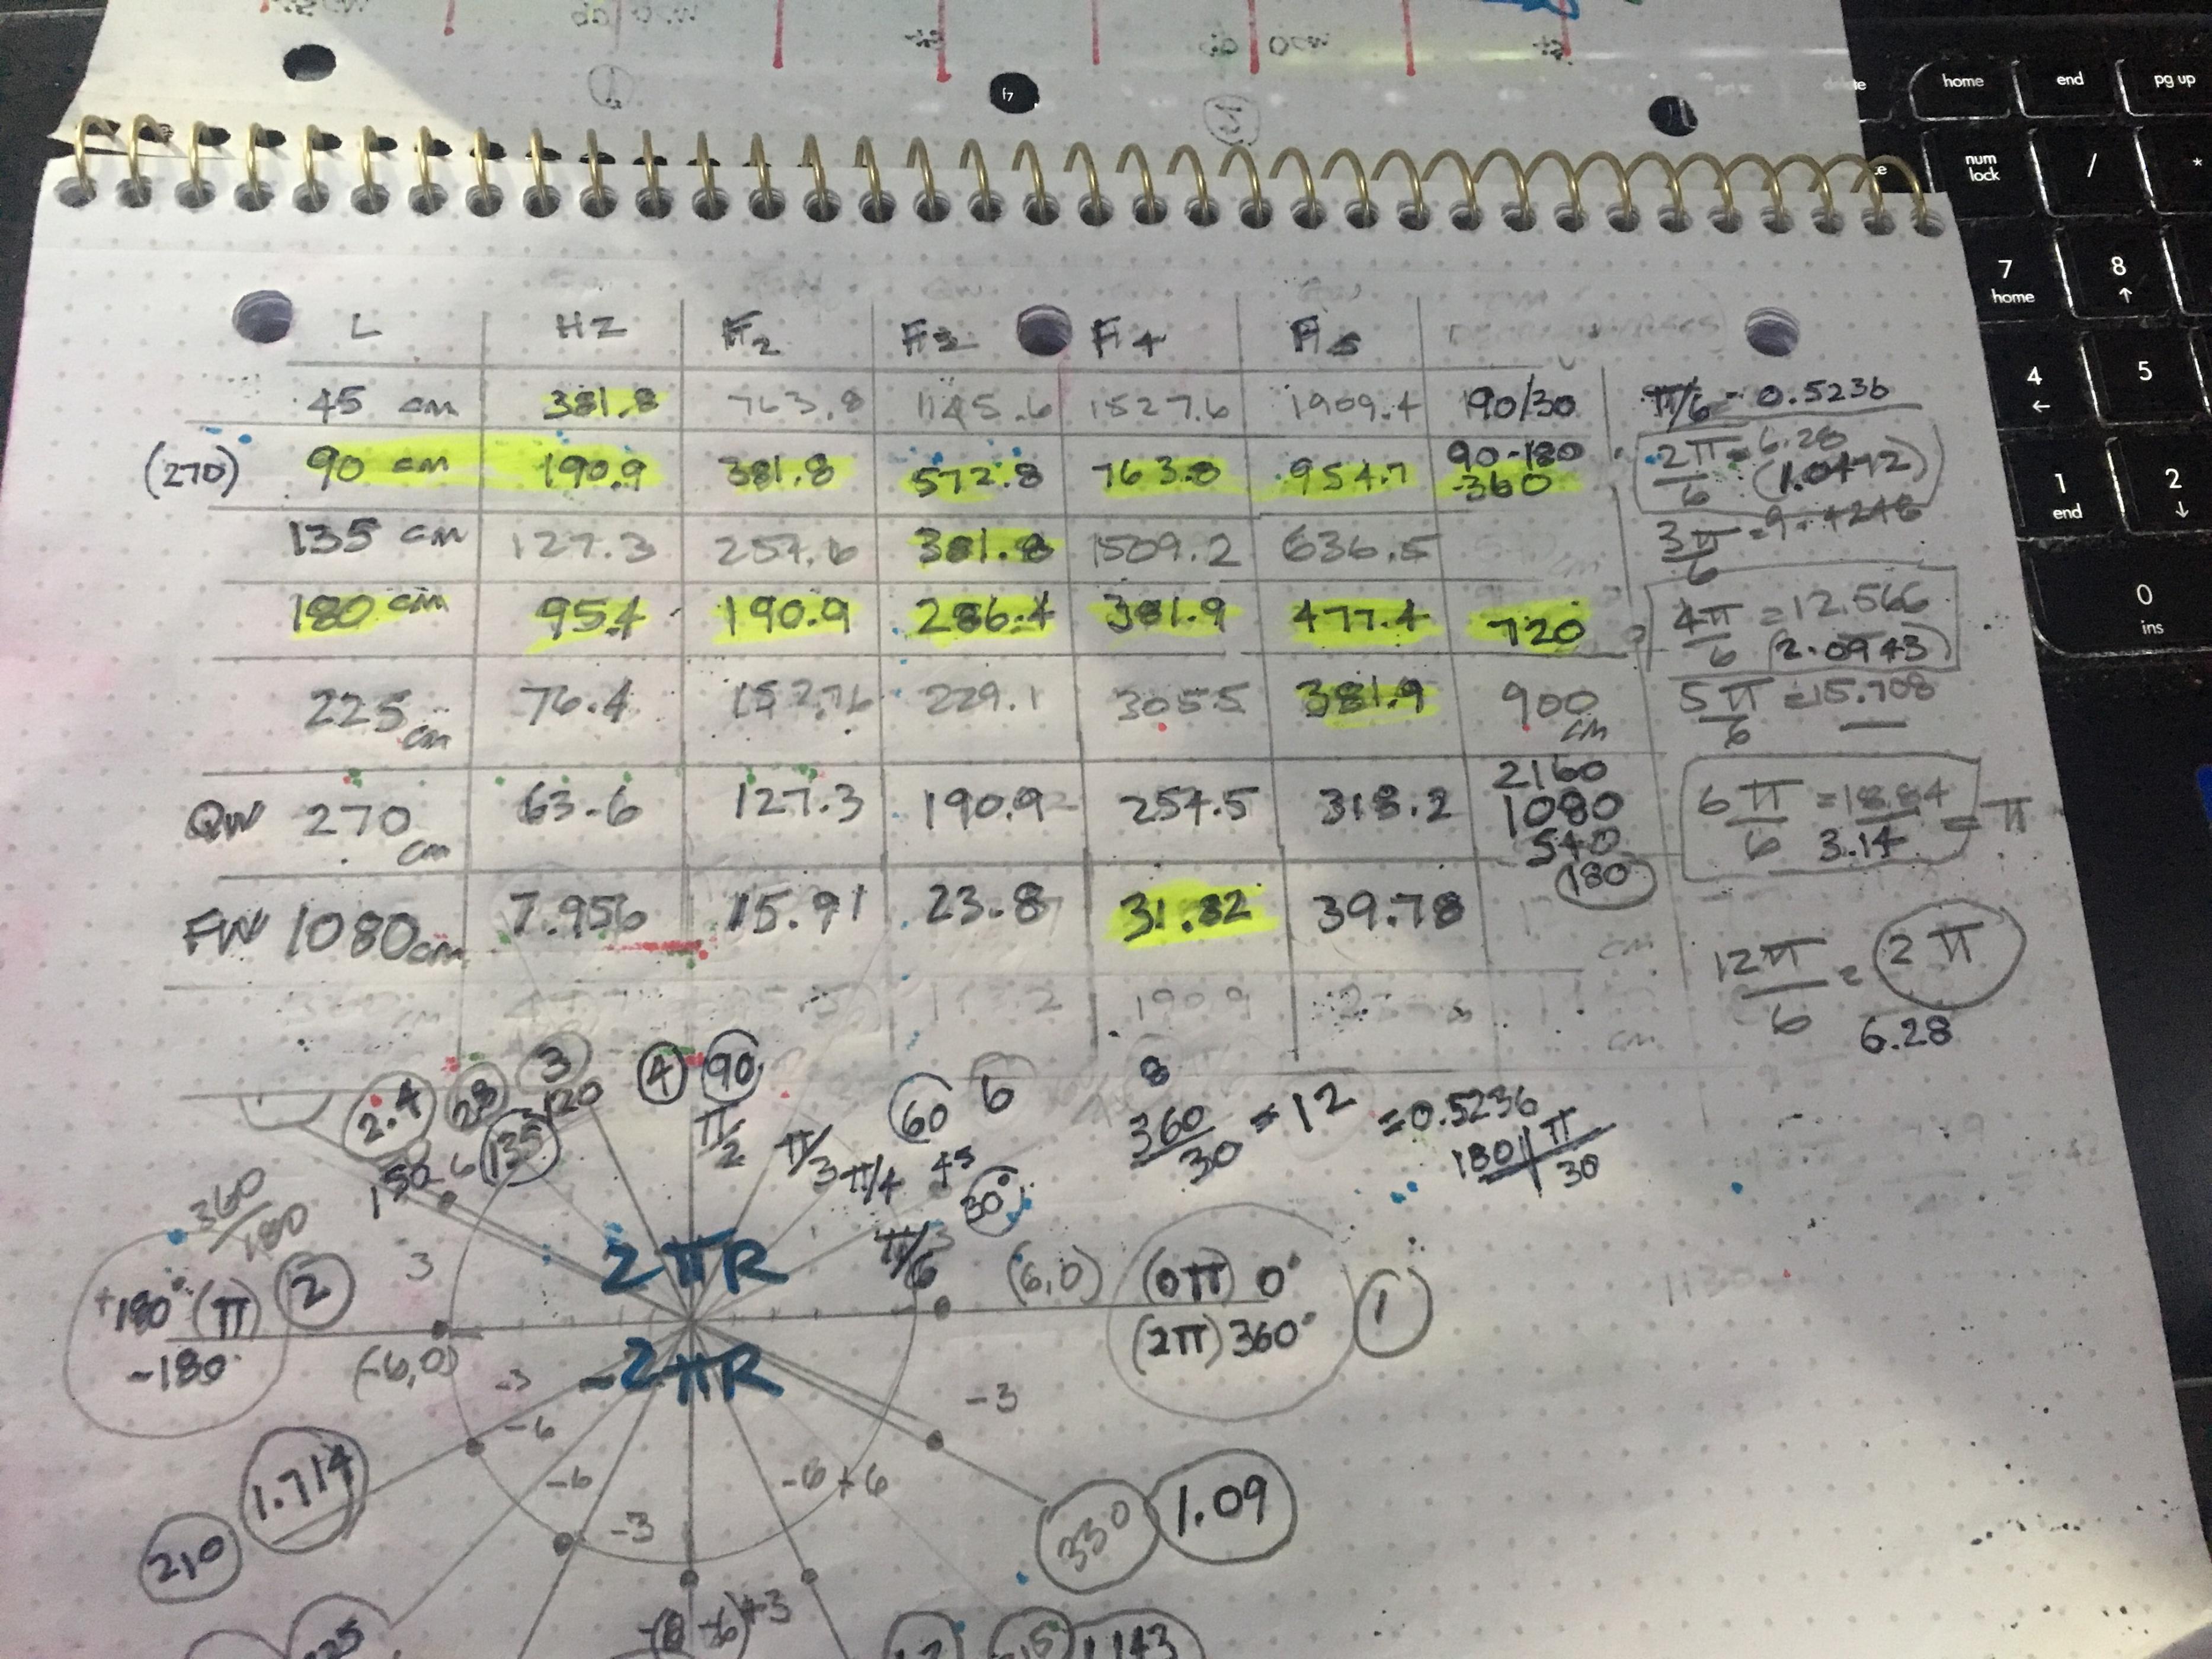 home end pg up
f7
num lock / *
7 home 8 ↑
4 ← 5
1 end 2 ↓
0 ins
L HZ F2 F3 F4 F5
45 cm 381.8 763.8 1145.6 1527.6 1909.4 90/30
(270) 90 cm 190.9 381.8 572.8 763.8 954.7 90-180
-360
135 cm 127.3 254.6 381.8 1509.2 636.5
180 cm 95.4 190.9 286.4 381.9 477.4 720
225 cm 76.4 152.76 229.1 305.5 381.9 900 cm
QW 270 cm 63.6 127.3 190.9 254.5 318.2 2160
1080
540
180
FW 1080 cm 7.956 15.91 23.87 31.82 39.78
cm
190.9
cm
π/6 = 0.5236
2π/6 = 6.28
(1.0472)
3π/6 = 9.4248
4π/6 = 12.566
(2.0943)
5π/6 = 15.708
6π/6 = 18.84 = π
3.14
12π/6 = 2π
6.28
2.4 3 4 90 60 6 8
150 135 120 π/2 π/3 π/4 45 30°
π/6
360/30 = 12 = 0.5236
180 | π/30
360/180
3 2πR (6,0) (0π) 0° 1
+180° (π) 2
-180° (-6,0) -2πR (2π) 360°
-3 -3
-6
1.714 -6 -6 +6 330 1.09
210 -3
(0 -6) +3
1.143